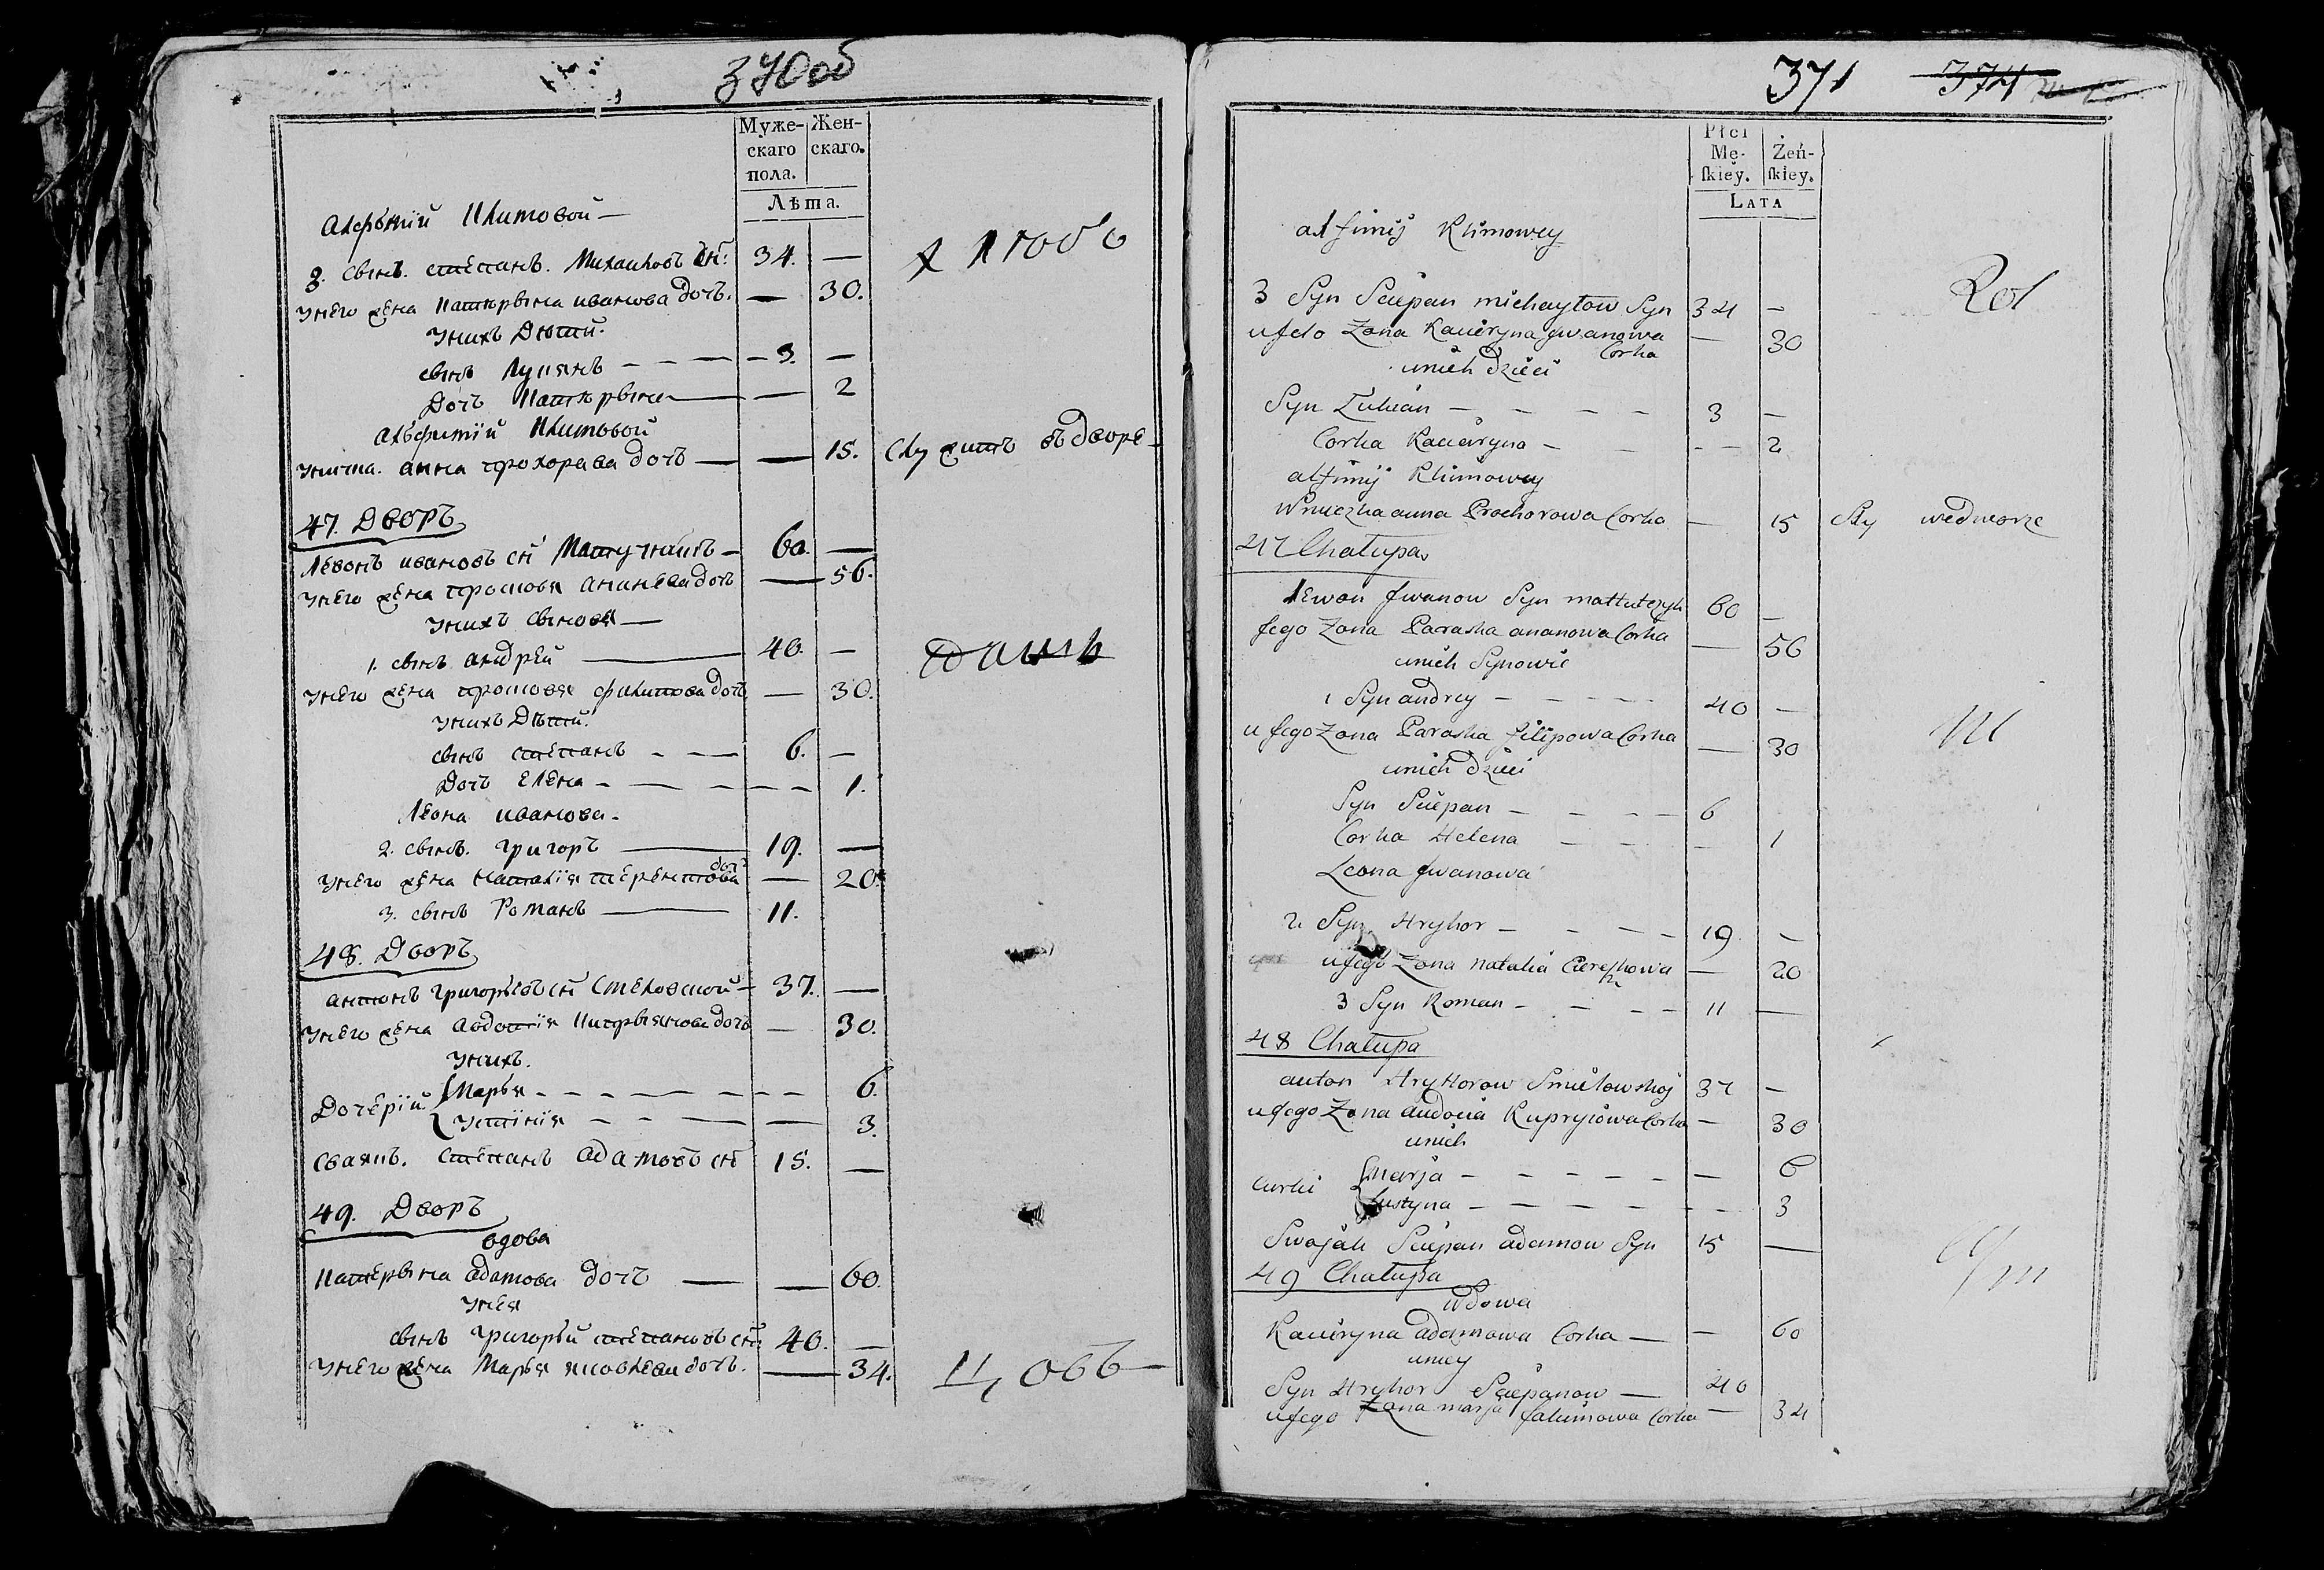 370об
Муже- Жен-
скаго скаго.
пола.
Лѣта.
Алефтiй Климовой —
3. сынъ. степанъ. Михаиловъ сн: 34. —
унего жена Катѣрына иванова дочь. — 30.
унихъ Дѣтй.
сынъ Лукянъ — — — 3. —
Дочь Катѣрына — — 2
Альфимiй Климовой
унучка. анна прохорава дочь — — 15. служитъ въ дворе —
47. Дворъ
Левонъ ивановъ сн 60. —
унего жена просковя ананева дочь — 56.
унихъ сыновя —
1. сынъ андрей — 40. —
унего жена просковя филипова дочь — 30.
унихъ Дѣтй.
сынъ степанъ — — — 6. —
Дочь елена — — — — 1.
Леона иванова.
2. сынъ. григоръ — 19. —
унего жена наталiя терентова дочь — 20.
3. сынъ Романъ — 11.
48. Дворъ
антонъ григорьевъ сн Смеловской — 37. —
унего жена авдотiя Купрыянова дочь — 30.
унихъ.
Дочерiй. Марья — — — — — 6.
устiнiя — — — — 3.
сваякъ. степанъ адамовъ сн 15. —
49. Дворъ
вдова
Катерына адамова дочь — — 60.
унея
сынъ григорьй степановъ сн: 40. —
унего жена Марья яковлева дочь. — 34.
371 374
Płci
Mę- Żeń-
ſkiey. ſkiey.
LATA
alfimij Klimowey
3 Syn Sciepan michayłow Syn 34 —
u jeło Zona Kacieryna jwanowa Corka — 30
unich dzieci
Syn Łukian — — — — 3 —
Corka Kacieryna — — — 2
alfimij Klimowey
Wnuczka anna Prochorowa Corka — 15 Słu wedworze
47 Chałupa
Lewon jwanow Syn 60 —
jego Zona Paraska ananowa Corka — 56
unich Synowie
1 Syn andrey — — — — 40 —
u jego Zona Paraska filipowa Corka — 30
unich dzieci
Syn Sciepan — — — — 6
Corka Helena — — — 1
Leona jwanowa
2 Syn Hryhor — — — — 19 —
u jego Zona natalia — 20
3 Syn Roman — — — — 11 —
48 Chałupa
anton Hryhorow Smiełowskoj 37 —
u jego Zona audocia Kupryiowa Corka — 30
unich
Curki marja — — — — — — 6
Justyna — — — — — — 3
Swojak Sciepan adamow Syn 15 —
49 Chałupa
wdowa
Kacieryna adamowa Corka — — 60
uniey
Syn Hryhor Sciepanow — 40
u jego Zona marja Corka — 34